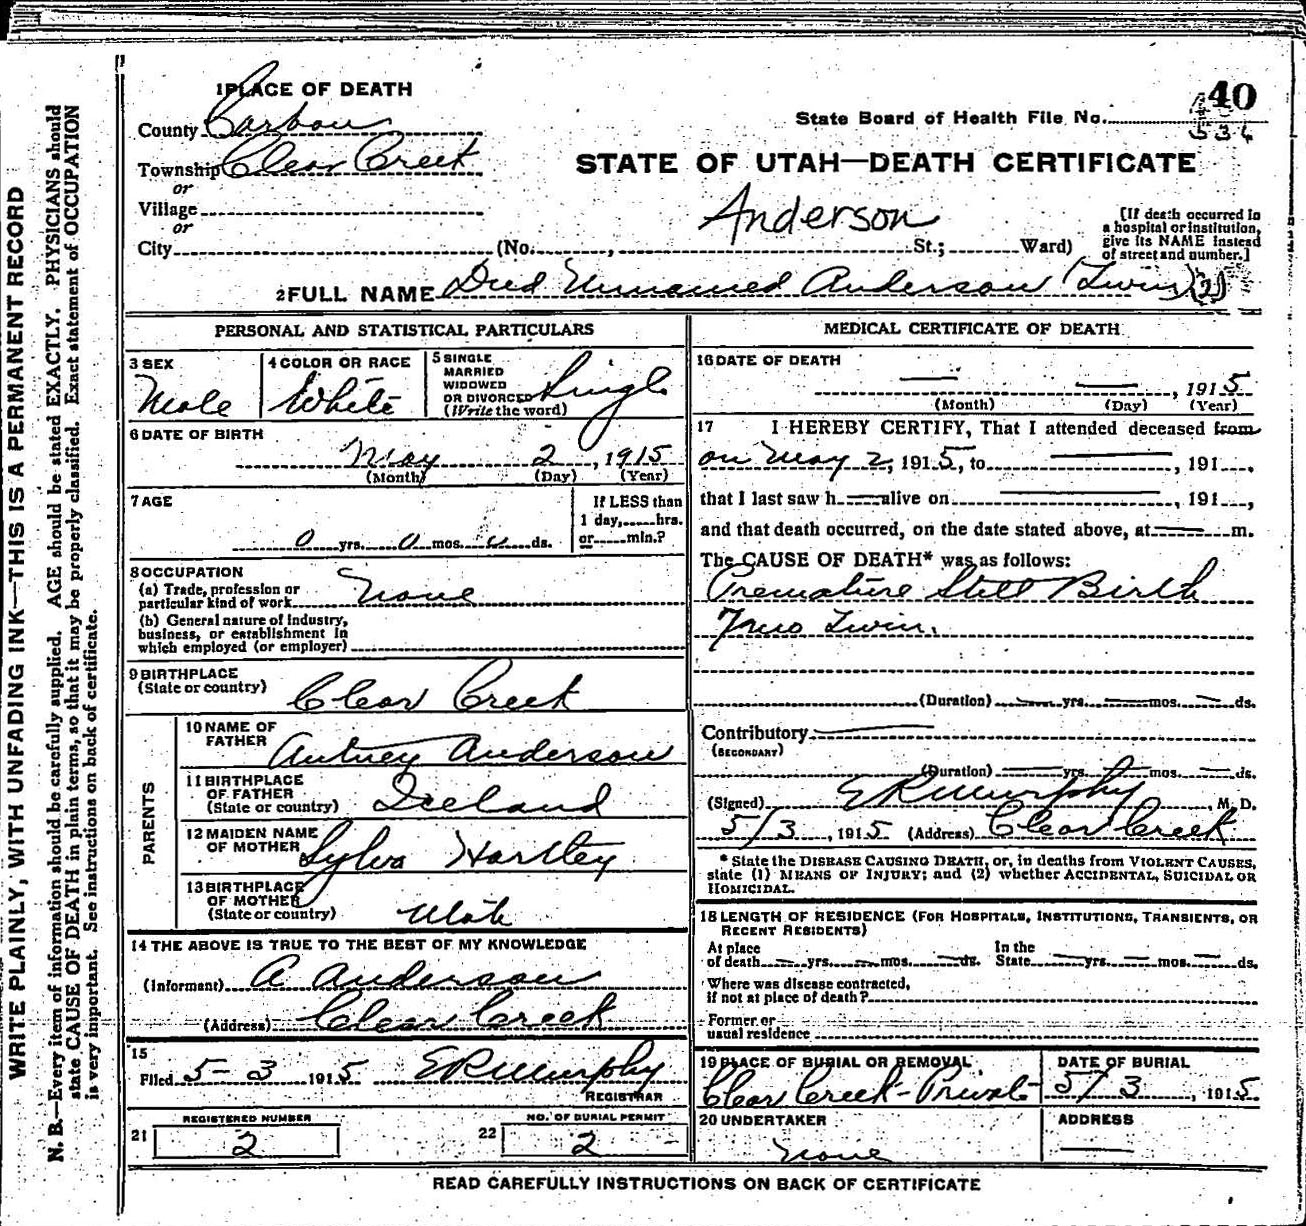 1 PLACE OF DEATH
County Carbon
Township Clear Creek
or
Village
or
City (No. , St.; Ward)
40
State Board of Health File No. 534
STATE OF UTAH—DEATH CERTIFICATE
Anderson
[If death occurred in
a hospital or institution,
give its NAME instead
of street and number.]
2 FULL NAME Died Unnamed Anderson (Twin) (2)
PERSONAL AND STATISTICAL PARTICULARS
3 SEX
Male
4 COLOR OR RACE
White
5 SINGLE
MARRIED
WIDOWED
OR DIVORCED
(Write the word)
Single
6 DATE OF BIRTH
May 2, 1915
(Month) (Day) (Year)
7 AGE
0 yrs. 0 mos. 0 ds.
If LESS than
1 day, hrs.
or min.?
8 OCCUPATION
(a) Trade, profession or
particular kind of work None
(b) General nature of Industry,
business, or establishment in
which employed (or employer)
9 BIRTHPLACE
(State or country) Clear Creek
PARENTS
10 NAME OF
FATHER Anderson
11 BIRTHPLACE
OF FATHER
(State or country) Iceland
12 MAIDEN NAME
OF MOTHER Sylva Hartley
13 BIRTHPLACE
OF MOTHER
(State or country) Utah
14 THE ABOVE IS TRUE TO THE BEST OF MY KNOWLEDGE
(Informant) A Anderson
(Address) Clear Creek
15
Filed 5-3 1915 E R Murphy
REGISTRAR
REGISTERED NUMBER
21 2
NO. OF BURIAL PERMIT
22 2
MEDICAL CERTIFICATE OF DEATH
16 DATE OF DEATH
— — , 1915
(Month) (Day) (Year)
17 I HEREBY CERTIFY, That I attended deceased from
on May 2, 1915, to — , 191 ,
that I last saw h — alive on — , 191 ,
and that death occurred, on the date stated above, at — m.
The CAUSE OF DEATH* was as follows:
Premature Still Birth
Twin.
(Duration) — yrs. — mos. — ds.
Contributory —
(SECONDARY)
(Duration) — yrs. — mos. — ds.
(Signed) E R Murphy , M. D.
5/3 , 1915 (Address) Clear Creek
* State the DISEASE CAUSING DEATH, or, in deaths from VIOLENT CAUSES,
state (1) MEANS OF INJURY; and (2) whether ACCIDENTAL, SUICIDAL OR
HOMICIDAL.
18 LENGTH OF RESIDENCE (FOR HOSPITALS, INSTITUTIONS, TRANSIENTS, OR
RECENT RESIDENTS)
At place
of death — yrs. — mos. — ds.
In the
State — yrs. — mos. — ds.
Where was disease contracted,
if not at place of death?
Former or
usual residence
19 PLACE OF BURIAL OR REMOVAL
Clear Creek - Private
DATE OF BURIAL
5/3 , 1915
20 UNDERTAKER
None
ADDRESS
—
READ CAREFULLY INSTRUCTIONS ON BACK OF CERTIFICATE
WRITE PLAINLY, WITH UNFADING INK—THIS IS A PERMANENT RECORD
N. B.—Every item of information should be carefully supplied. AGE should be stated EXACTLY. PHYSICIANS should
state CAUSE OF DEATH in plain terms, so that it may be properly classified. Exact statement of OCCUPATION
is very important. See instructions on back of certificate.